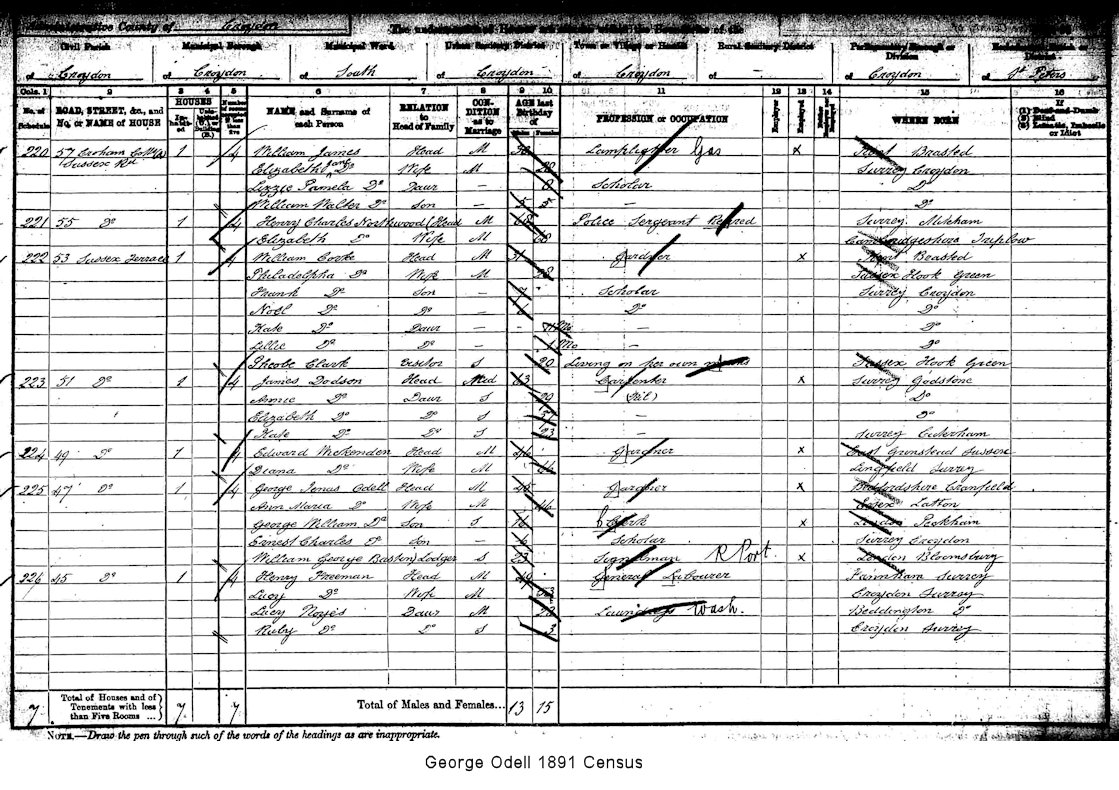 Administrative County of Croydon The undermentioned Houses are situate within the Boundaries of the
Civil Parish Municipal Borough Municipal Ward Urban Sanitary District Town or Village or Hamlet Rural Sanitary District Parliamentary Borough or Division Ecclesiastical Parish or District
of Croydon of Croydon of South of Croydon of Croydon of - of Croydon of St Peters
Cols. 1 2 3 4 5 6 7 8 9 10 11 12 13 14 15 16
No. of Schedule ROAD, STREET, &c., and No. or NAME of HOUSE HOUSES Inhabited Number of rooms occupied if less than five NAME and Surname of each Person RELATION to Head of Family CONDITION as to Marriage AGE last Birthday of Males Females PROFESSION or OCCUPATION Employer Employed WHERE BORN If (1) Deaf-and-Dumb (2) Blind (3) Lunatic, Imbecile or Idiot
220 57 1 4 William James Head M Lamplighter Gas x Kent Brasted
Sussex Rd Elizabeth Jane Do Wife M Surrey Croydon
Lizzie Pamela Do Daur - 8 Scholar Do
William Walter Do Son - 5 - Do
221 55 Do 1 4 Henry Charles Northwood Head M 68 Police Sergeant Retired Surrey Mitcham
Elizabeth Do Wife M 68 Cambridgeshire Triplow
222 53 Sussex Terrace 1 4 William Cooke Head M 31 Gardner x Kent Brasted
Philadelphia Do Wife M 28 Sussex Hook Green
Frank Do Son - 7 Scholar Surrey Croydon
Noel Do Do - 6 Do Do
Kate Do Daur - Mo - Do
Lillie Do Do - 1 Mo - Do
Phoebe Clark Visitor S 20 Living on her own means Sussex Hook Green
223 51 Do 1 4 James Dodson Head Wid 63 Carpenter x Surrey Godstone
Annie Do Daur S 29 (Nil) Do
Elizabeth Do Do S - Do
Kate Do Do S 23 - Surrey
224 49 Do 1 4 Edward Wickenden Head M Gardner x East Grinstead Sussex
Diana Do Wife M Lingfield Surrey
225 47 Do 1 4 George Odell Head M 45 Gardner x Bedfordshire Cranfield
Ann Maria Do Wife M 46 Essex Latton
George William Do Son S 16 Clerk x London Peckham
Ernest Charles Do Son - 6 Scholar Surrey Croydon
William George Lodger S 23 Signalman R Port. x London Bloomsbury
226 45 Do 1 4 Henry Freeman Head M 49 General Labourer Farnham Surrey
Lucy Do Wife M Croydon Surrey
Lucy Noyes Daur M Laundry Wash. Beddington Do
Ruby Do Do S 3 Croydon Surrey
7 Total of Houses and of Tenements with less than Five Rooms ... 7 7 Total of Males and Females... 13 15
NOTE.—Draw the pen through such of the words of the headings as are inappropriate.
George Odell 1891 Census